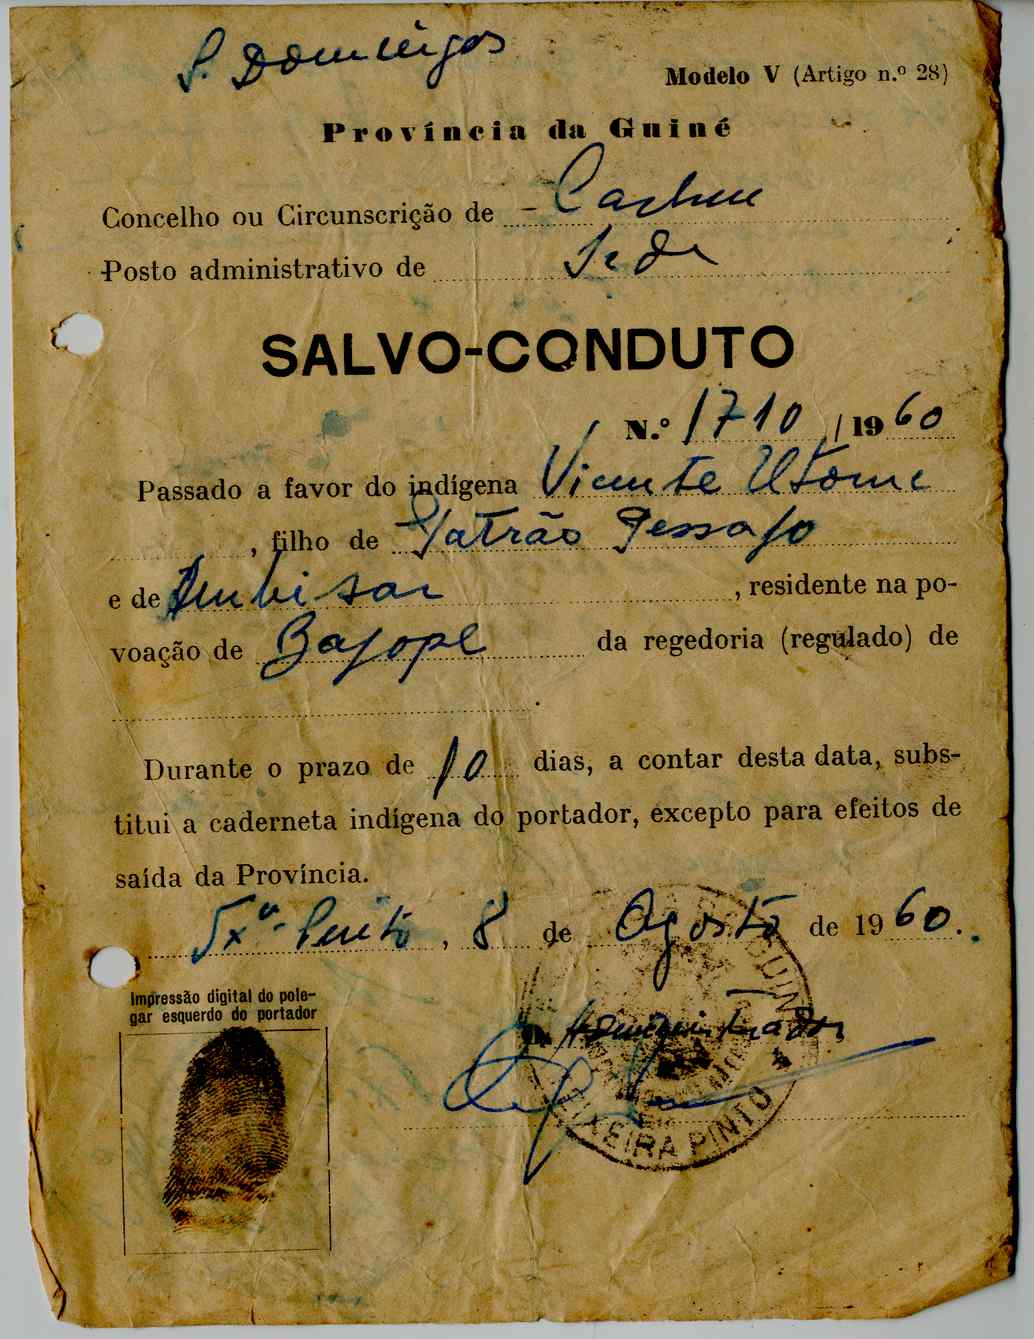 S. Domingos
Modelo V (Artigo n.º 28)
Província da Guiné
Concelho ou Circunscrição de Cacheu
Posto administrativo de Sede
SALVO-CONDUTO
N.º 1710 / 1960
Passado a favor do indígena Vicente Utome
, filho de Patrão Pessajo
e de Ambisar, residente na po-
voação de Bajope da regedoria (regulado) de
.
Durante o prazo de 10 dias, a contar desta data, subs-
titui a caderneta indígena do portador, excepto para efeitos de
saída da Província.
Txª Pinto, 8 de Agosto de 1960.
Impressão digital do pole-
gar esquerdo do portador
O Administrador
GUINÉ
TEIXEIRA PINTO